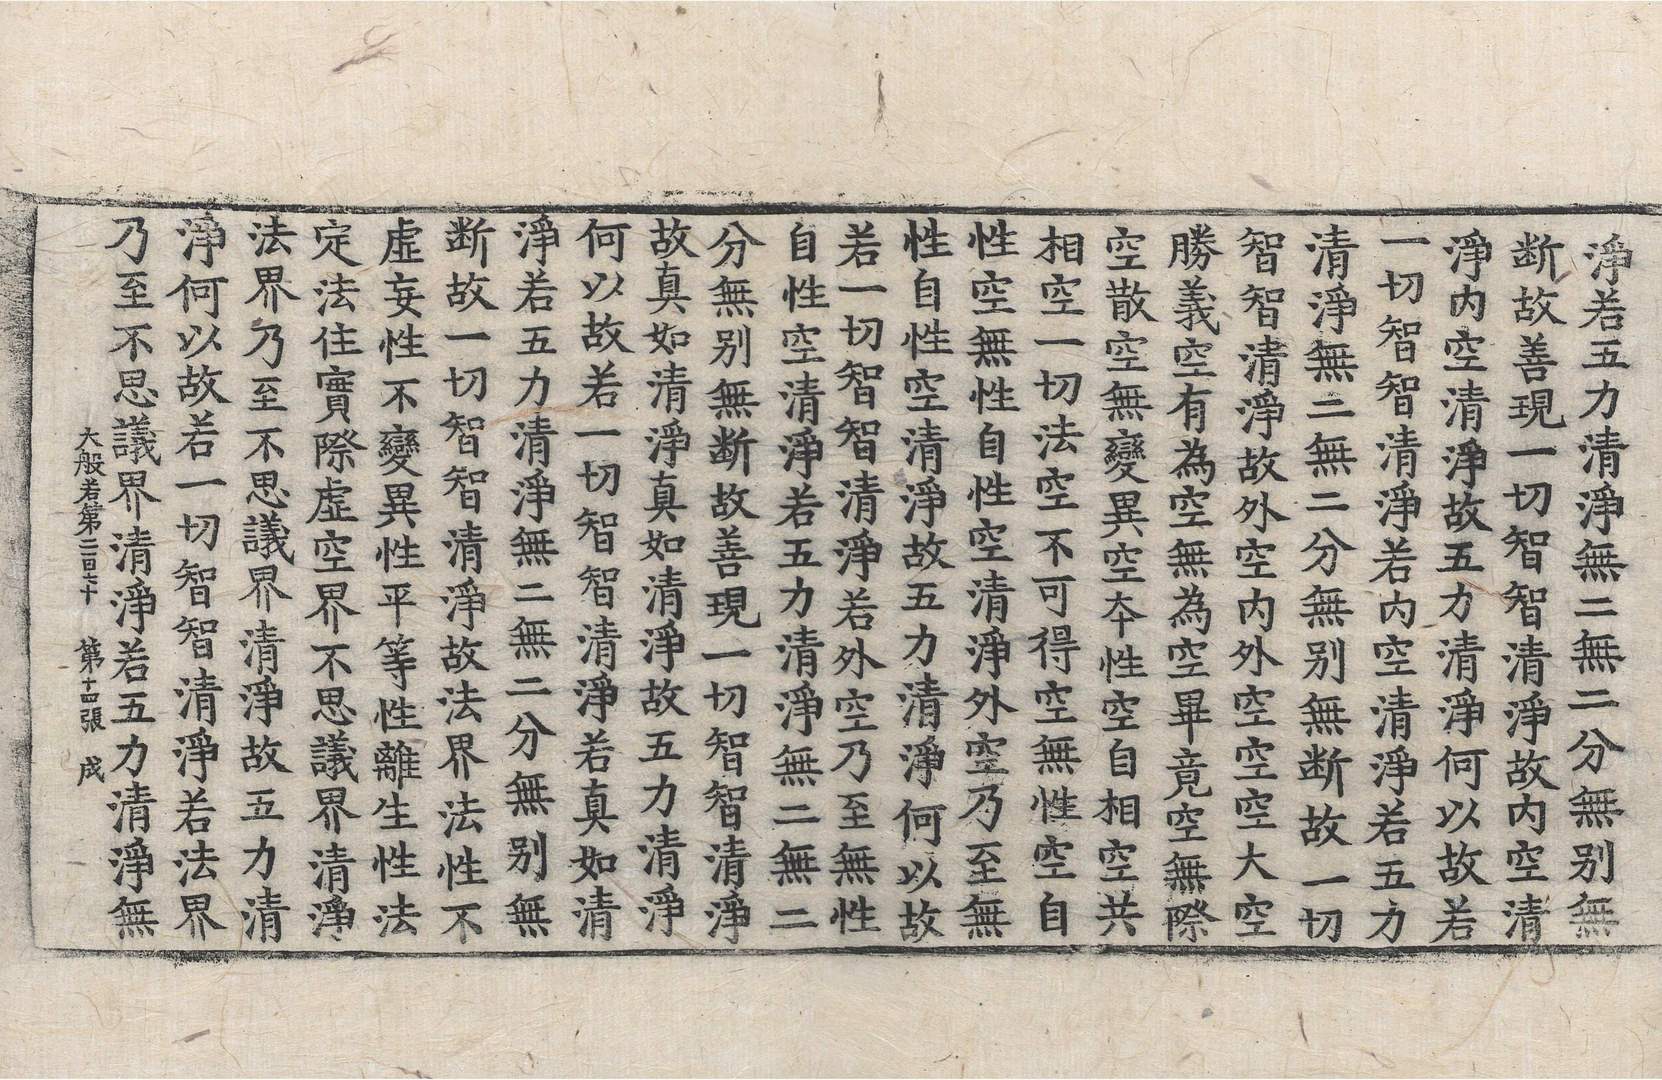 淨若五力清淨無二無二分無別無
断故善現一切智智清淨故內空清
淨內空清淨故五力清淨何以故若
一切智智清淨若內空清淨若五力
清淨無二無二分無別無断故一切
智智清淨故外空內外空空空大空
勝義空有為空無為空畢竟空無際
空散空無變異空夲性空自相空共
相空一切法空不可得空無性空自
性空無性自性空清淨外空乃至無
性自性空清淨故五力清淨何以故
若一切智智清淨若外空乃至無性
自性空清淨若五力清淨無二無二
分無別無断故善現一切智智清淨
故真如清淨真如清淨故五力清淨
何以故若一切智智清淨若真如清
淨若五力清淨無二無二分無別無
断故一切智智清淨故法界法性不
虛妄性不變異性平等性離生性法
定法住實際虛空界不思議界清淨
法界乃至不思議界清淨故五力清
淨何以故若一切智智清淨若法界
乃至不思議界清淨若五力清淨無
大般若第二百六十 第十四張 成